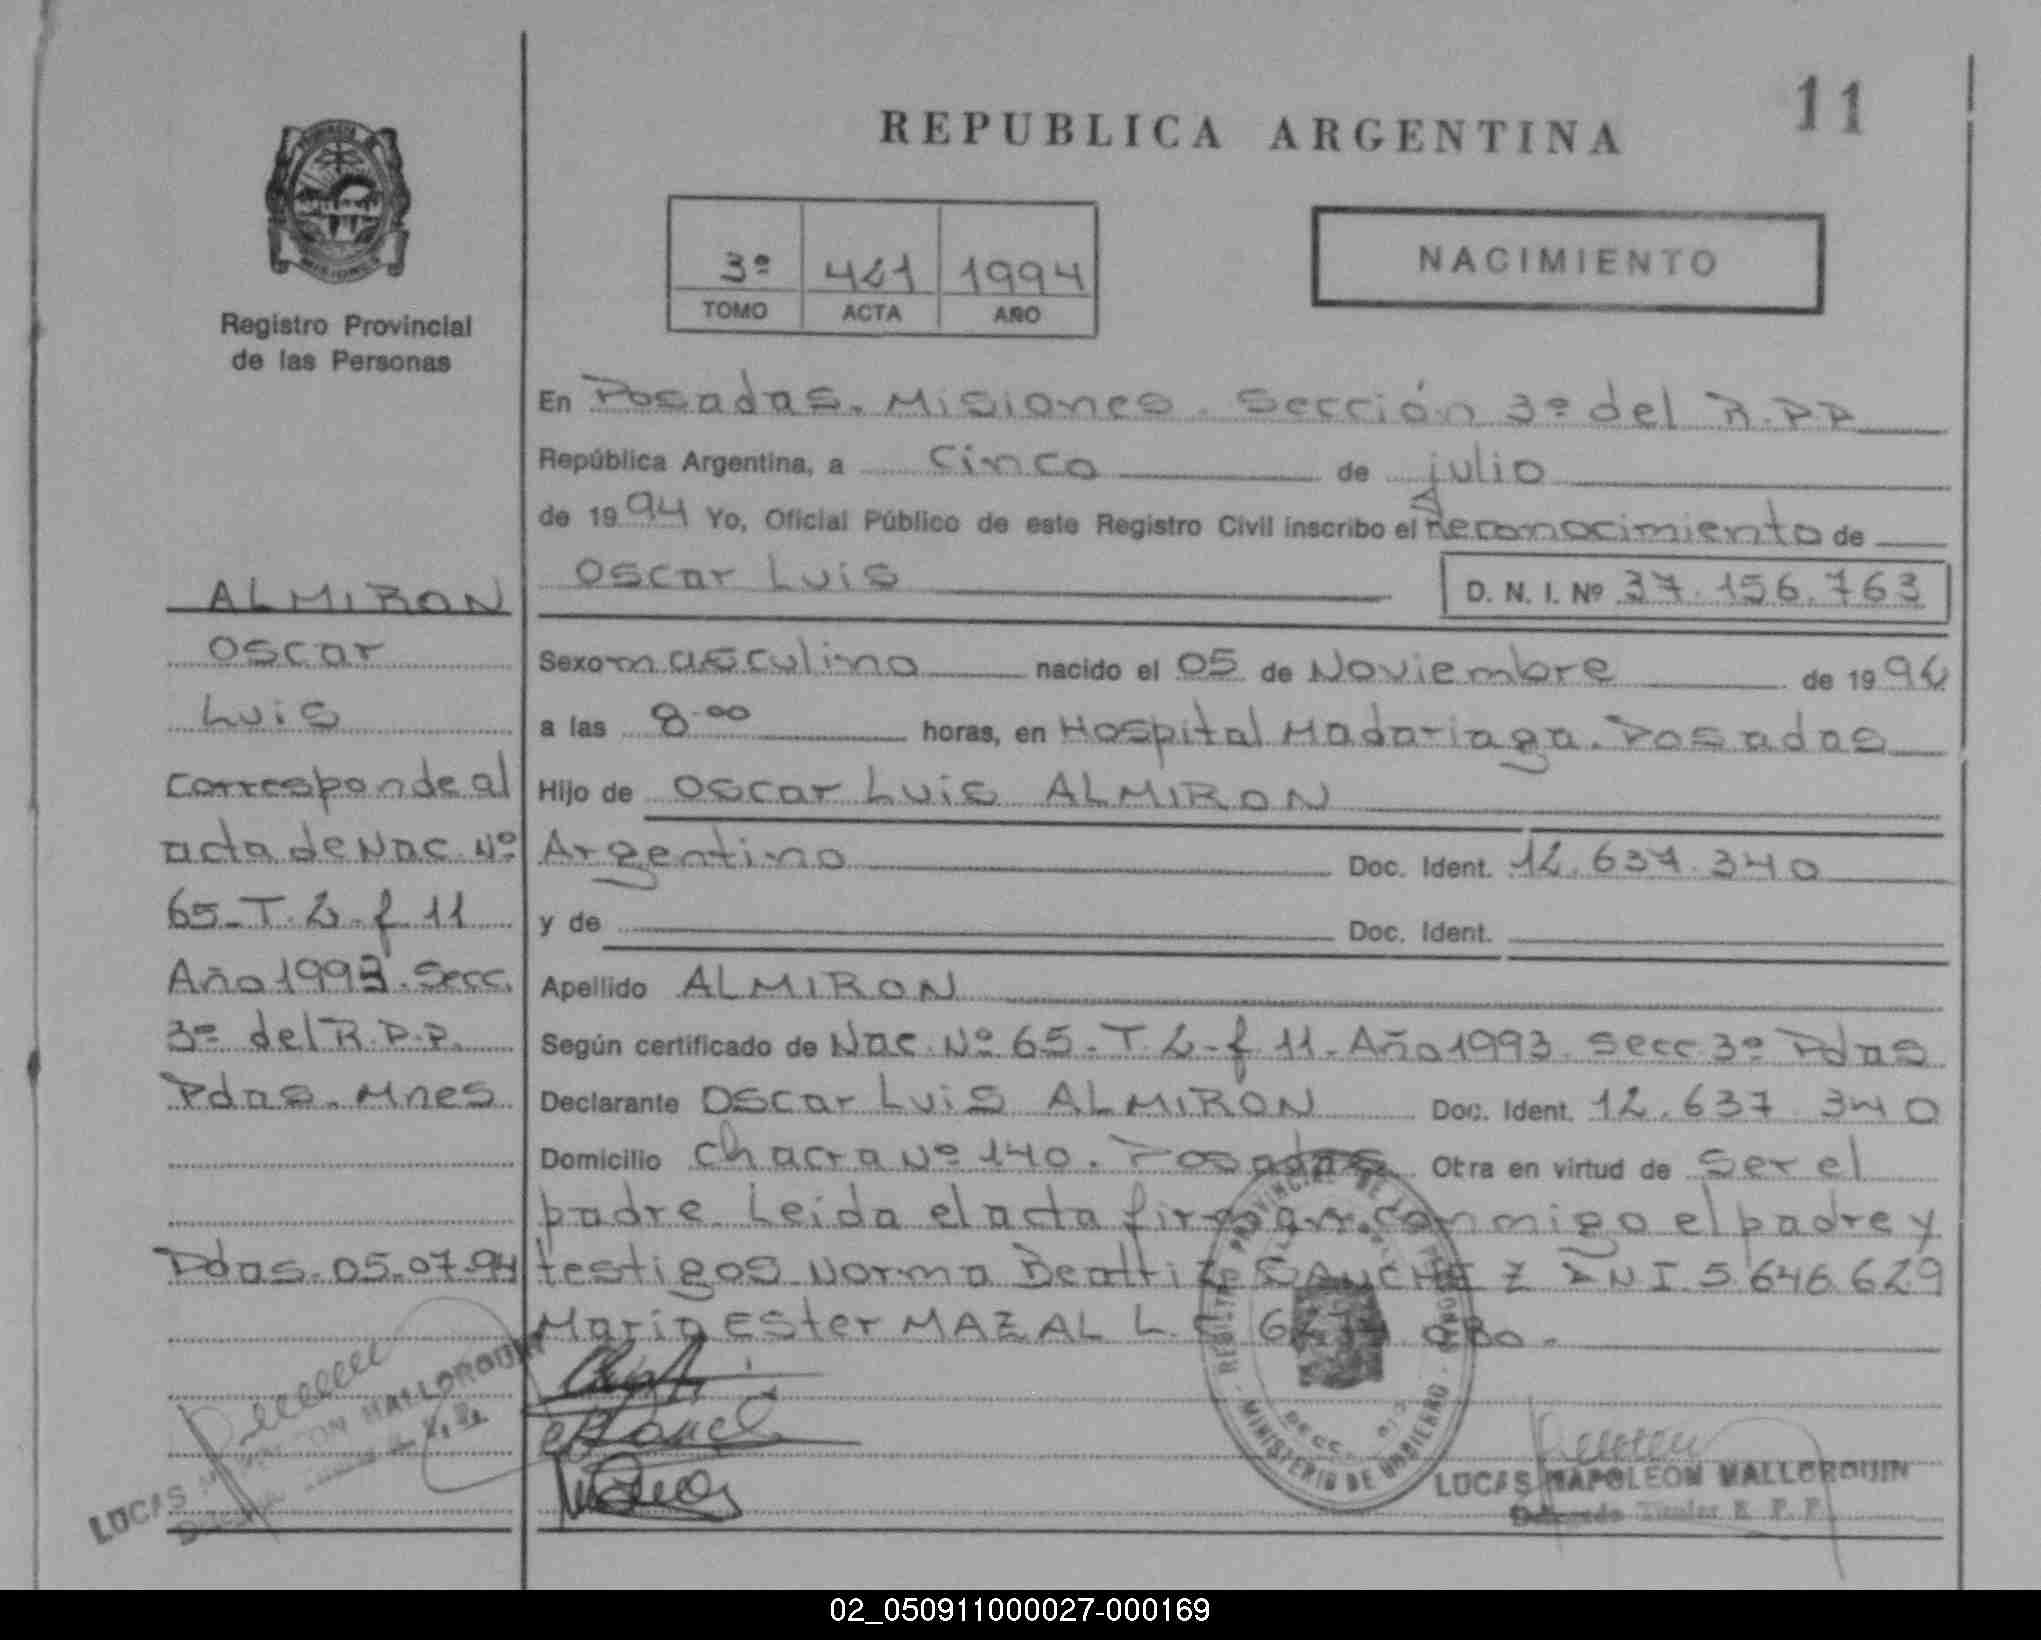 11
REPUBLICA ARGENTINA
NACIMIENTO
3º 421 1994
TOMO ACTA AÑO
MISIONES
Registro Provincial
de las Personas
En Posadas. Misiones. Sección 3º del R.P.P
República Argentina, a cinco de julio
de 1994 Yo, Oficial Público de este Registro Civil inscribo el Reconocimiento de
Oscar Luis D. N. I. Nº 37.156.763
Sexo masculino nacido el 05 de Noviembre de 1992
a las 8.00 horas, en Hospital Madariaga. Posadas
Hijo de Oscar Luis ALMIRON
Argentino Doc. Ident. 12.637.340
y de Doc. Ident.
Apellido ALMIRON
Según certificado de Nac. Nº 65-T.2-f 11-Año 1993. Secc 3º Pdas
Declarante Oscar Luis ALMIRON Doc. Ident. 12.637.340
Domicilio Chacra Nº 140. Posadas Otra en virtud de ser el
padre. Leida el acta firman conmigo el padre y
testigos Norma Beatriz SANCHEZ DNI 5.646.629
Maria Ester MAZAL L.C
ALMIRON
Oscar
Luis
Corresponde al
acta de Nac. Nº
65-T.2-f 11
Año 1993. Secc.
3º del R.P.P.
Pdas. Mnes
Pdas. 05.07.94
LUCAS MALLORQUIN
MINISTERIO DE GOBIERNO
LUCAS NAPOLEON MALLORQUIN
Delegado Titular R. P. P.
02_050911000027-000169